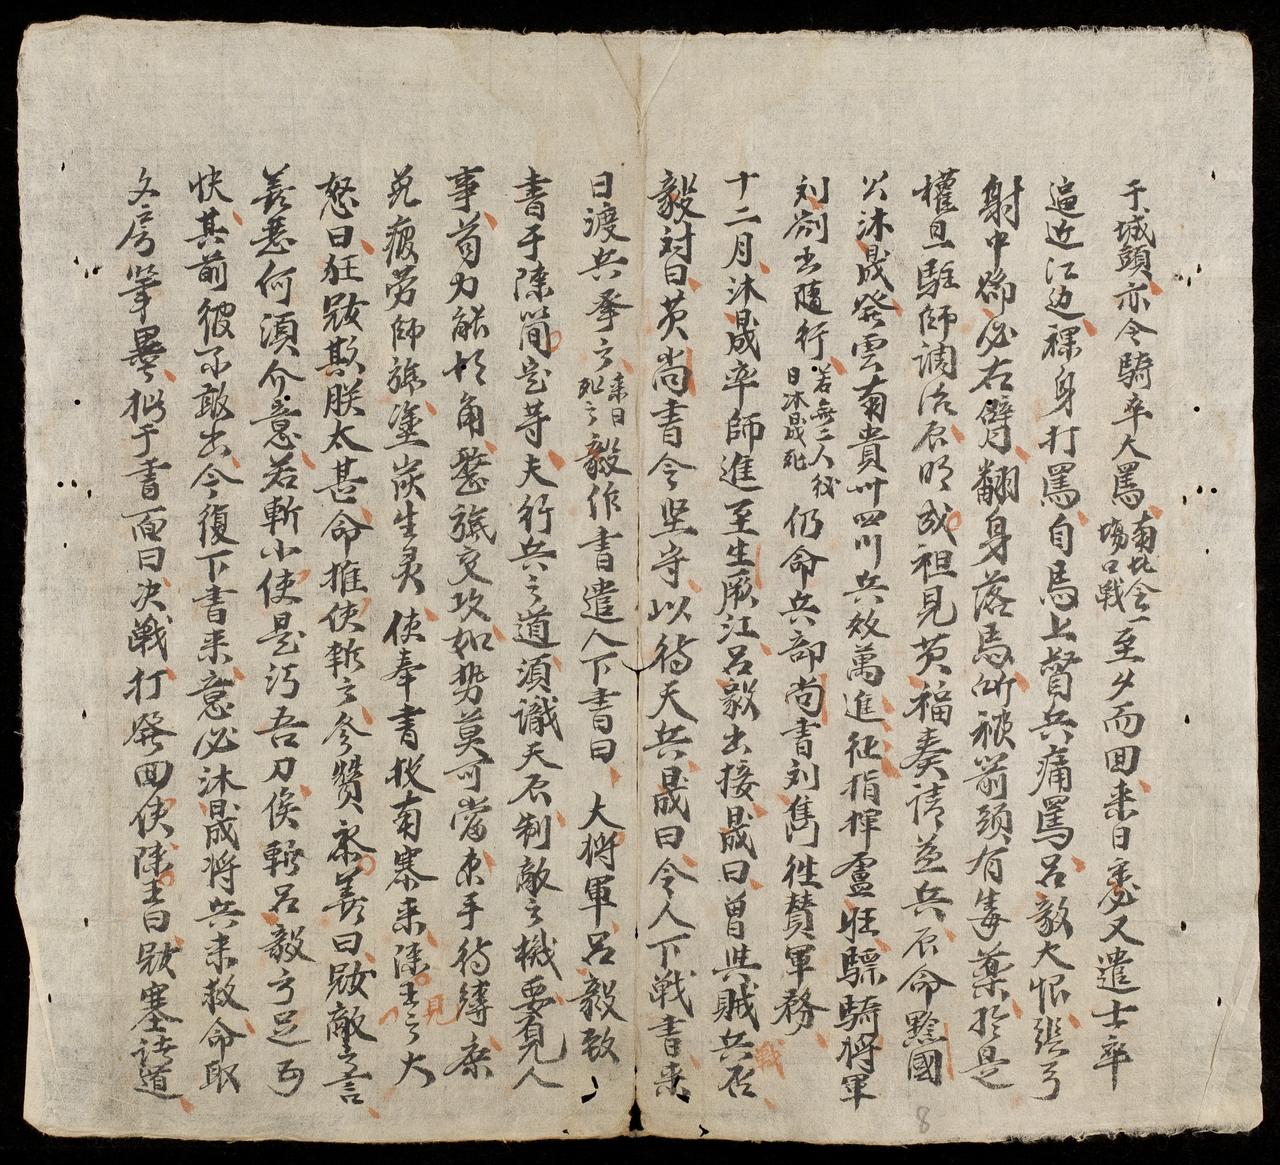 于城頭亦令騎卒大罵南北会一塲口戰至夕而回来日慶又遣士卒
逼近江边裸身打罵自馬上督兵痛罵呂毅大恨張弓
射中𠊓必右臂翻身落馬所被箭頭有毒藥於是
權且駐師調治后明成祖見黄福奏請益兵后命黔國
公沐晟發雲南貴州四川兵效萬進征指揮盧旺驃騎將軍
刘劄出隨行若無二人後日沐晟死仍命兵部尚書刘雋徃賛軍務
十二月沐晟卒師進至生厥江呂毅出接晟曰曽與賊兵戰否
毅対曰黄尚書令坚守以待天兵晟曰令人下戰書来
日渡兵擊之来日死之毅作書遣人下書曰大将軍呂毅致
書于陳簡定等夫行兵之道須識天君制敵之機要見人
事苟力能犄角鏖旗交攻如勢莫可當束手待縛庶
免疲勞師旅塗炭生灵使奉書投南寨来陳主見之大
怒曰狂賊欺朕太甚命推使斬之参贊黍善曰賊敵之言
善悪何須介意若斬小使是污吾刀俟斬呂毅方足为
快其前彼不敢出今復下書来意必沐晟将兵来救命取
文房筆墨批于書面曰决戰打發回使陳主曰賊塞諸道